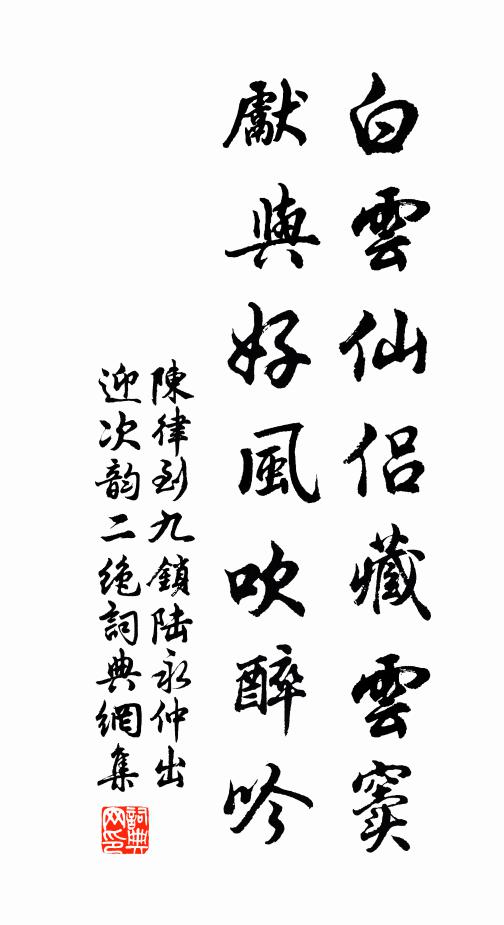 白雲仙侶藏雲竇
獻與好風吹醉吟
陳律到九鎖陸永仲出
迎次韵二絶詞典網集
詞典
网印